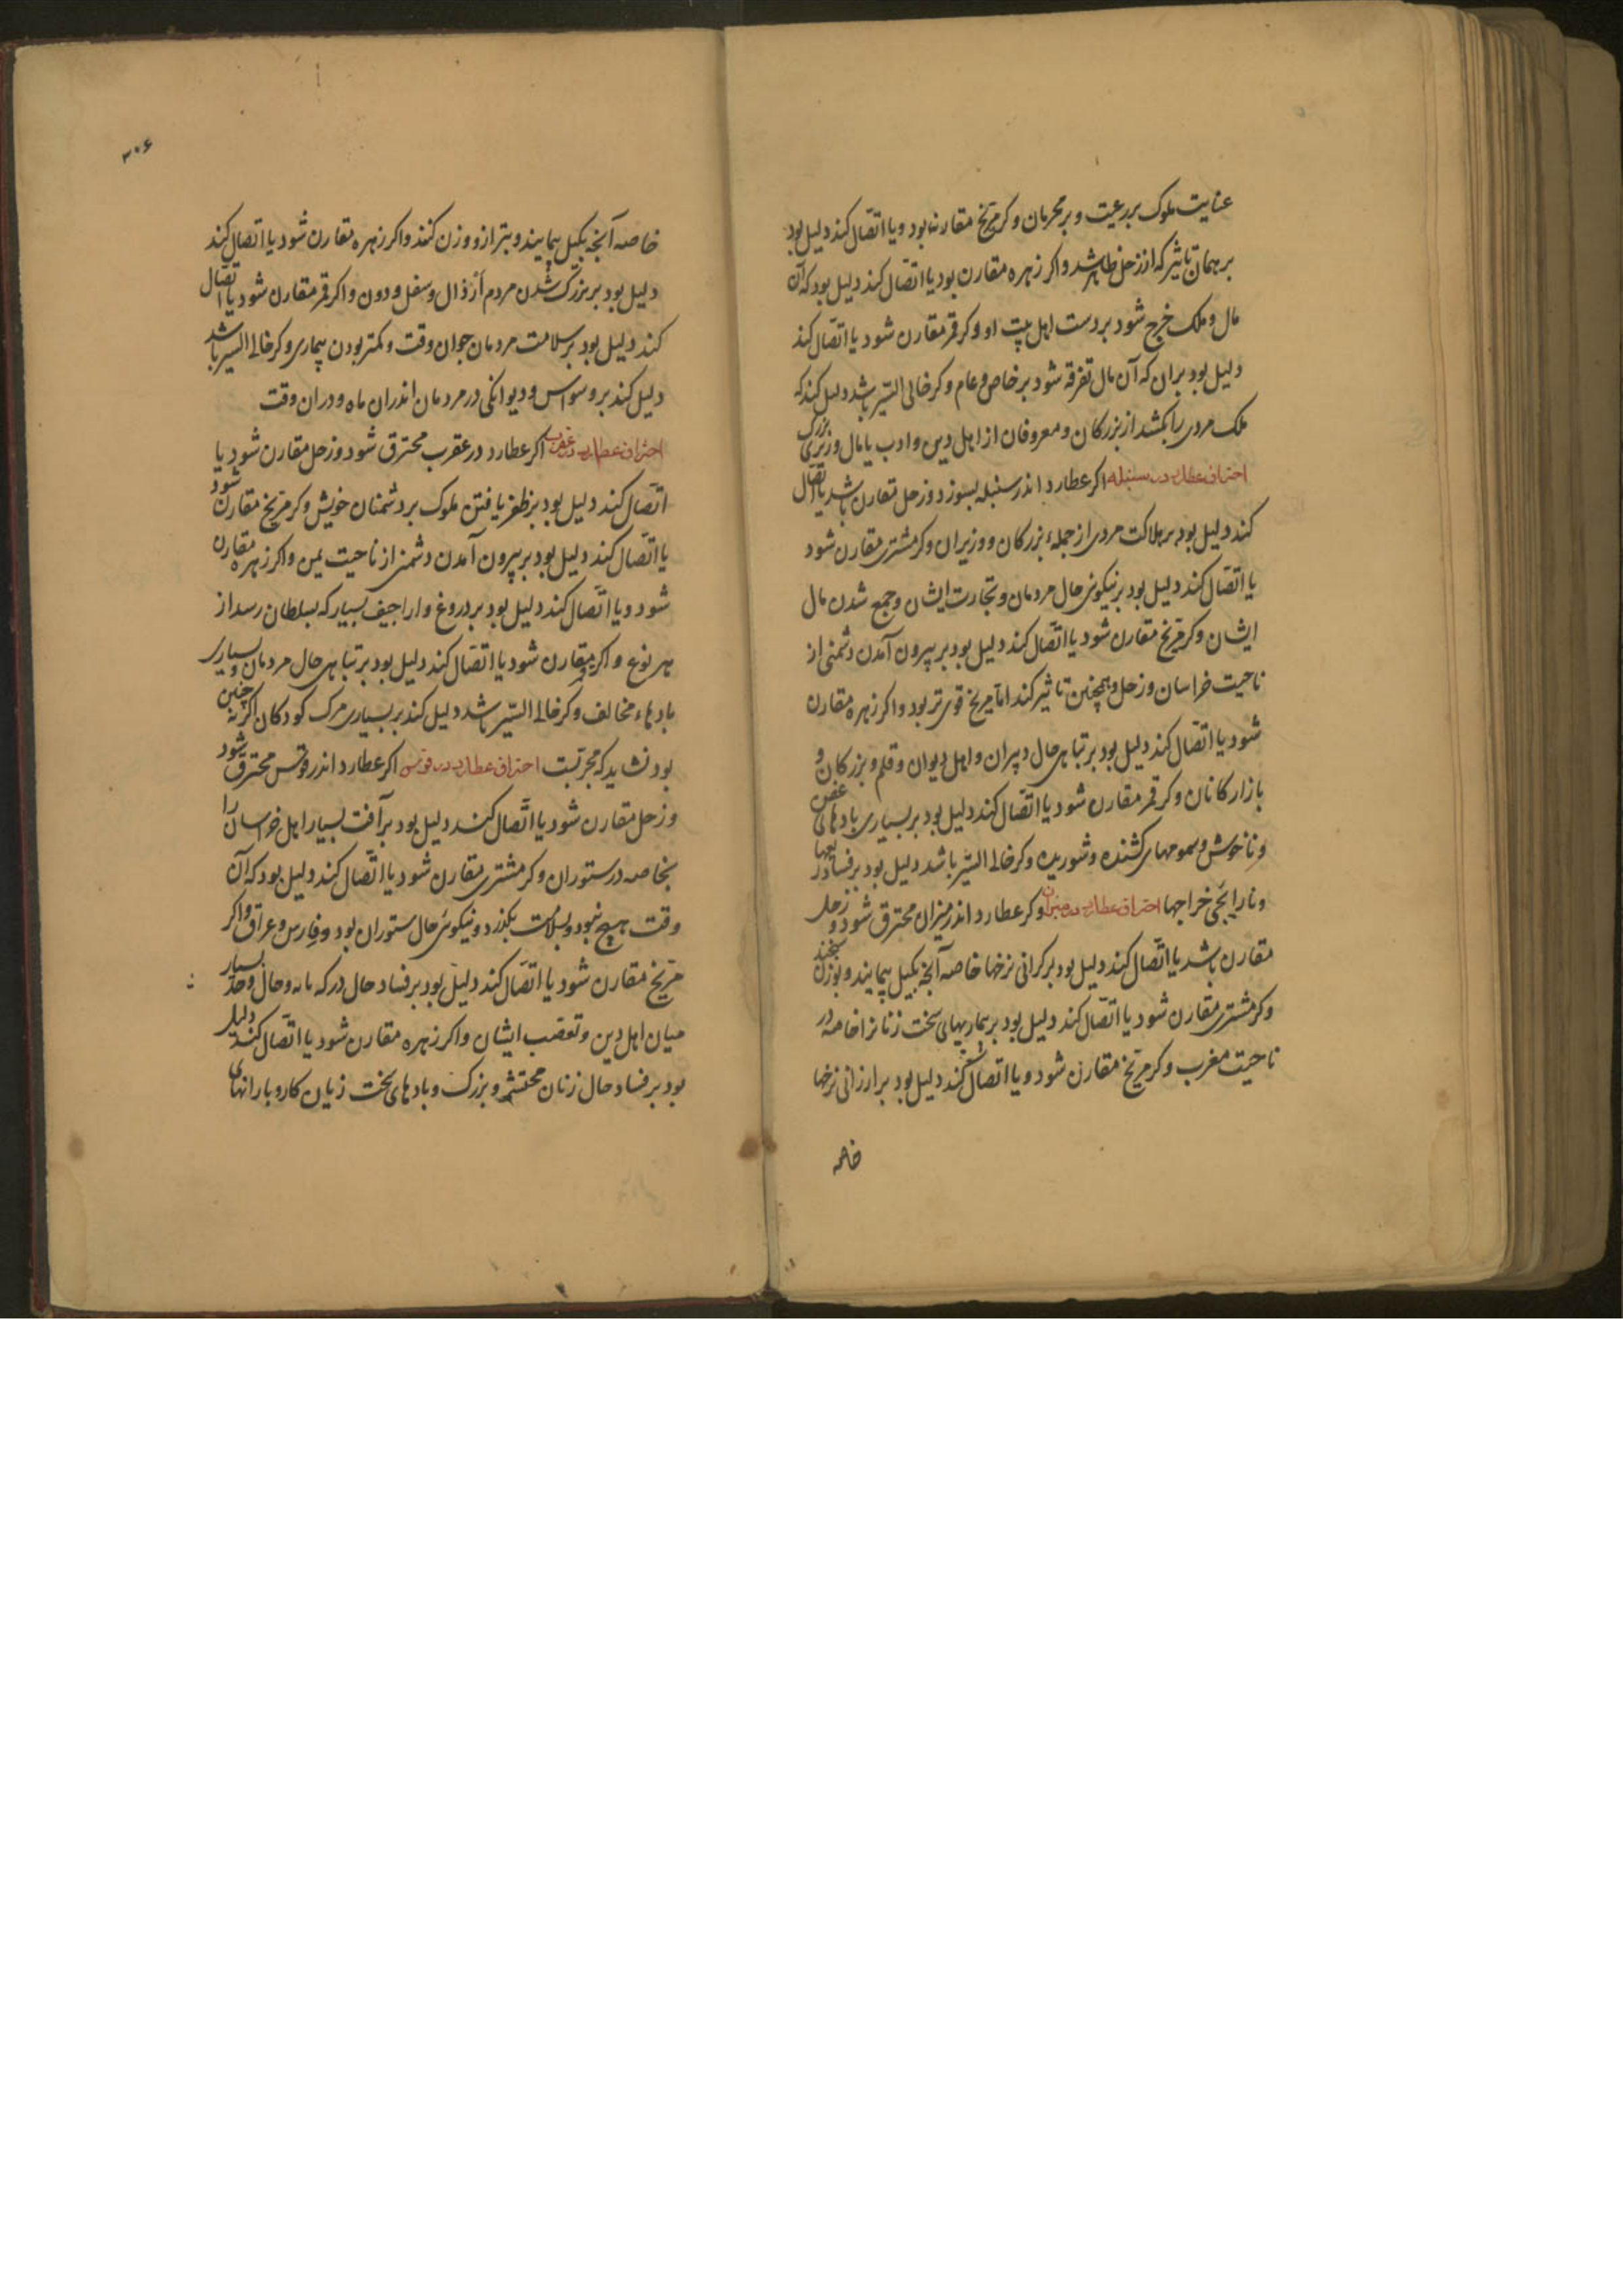 عنایت ملوک بر رعیت و بر محرمان و کر مریخ مقارنه بود و یا اتصال کند دلیل بود
بر همان تاثیر که از زحل ظاهر شد و اکر زهره مقارن بود یا اتصال کند دلیل بود که آن
مال و ملک خرج شود بر دست اهل بیت او و کر قمر مقارن شود یا اتصال کند
دلیل بود بران که آن مال تفرقه شود بر خاص و عام و کر خالی السیر باشد دلیل کند که
ملک مردی را بکشد از بزرکان و معروفان از اهل دین و ادب یا مال وزیری بزرک
احتراق عطارد در سنبله اکر عطارد اندر سنبله بسوزد و زحل مقارن باشد یا اتصال
کند دلیل بود بر هلاکت مردی از جمله بزرکان و وزیران و کر مشتری مقارن شود
یا اتصال کند دلیل بود بر نیکوئی حال مردمان و تجارت ایشان و جمع شدن مال
ایشان و کر مریخ مقارن شود یا اتصال کند دلیل بود بر بیرون آمدن دشمنی از
ناحیت خراسان و زحل و همچنین تاثیر کند اما مریخ قوی تر بود و اکر زهره مقارن
شود یا اتصال کند دلیل بود بر تباهی حال دبیران و اهل دیوان و قلم و بزرکان و
بازارکانان و کر قمر مقارن شود یا اتصال کند دلیل بود بر بسیاری بادهای عفن
و ناخوش و سمومهای کشنده و شوریده و کر خالی السیر باشد دلیل بود بر فساد
و نارایجی خراجها احتراق عطارد در میزان و کر عطارد اندر میزان محترق شود و زحل
مقارن باشد یا اتصال کند دلیل بود بر کرانی نرخها خاصه آنچه بکیل پیمایند و بوزن سنجند
و کر مشتری مقارن شود یا اتصال کند دلیل بود بر بیماریهای سخت زنانرا خاصه در
ناحیت مغرب و کر مریخ مقارن شود و یا اتصال کند دلیل بود بر ارزانی نرخها
خاصه
۲۰۶
خاصه آنچه بکیل پیمایند و بترازو وزن کنند و اکر زهره مقارن شود یا اتصال کند
دلیل بود بر بزرک شدن مردم ارذال و سفل و دون و اکر قمر مقارن شود یا اتصال
کند دلیل بود بر سلامت مردمان جوان وقت و کمتر بودن بیماری و کر خالی السیر باشد
دلیل کند بر وسواس و دیوانکی در مردمان اندران ماه و دران وقت
احتراق عطارد در عقرب اکر عطارد در عقرب محترق شود و زحل مقارن شود یا
اتصال کند دلیل بود بر ظفر یافتن ملوک بر دشمنان خویش و کر مریخ مقارن شود
یا اتصال کند دلیل بود بر بیرون آمدن دشمنی از ناحیت یمن و اکر زهره مقارن
شود و یا اتصال کند دلیل بود بر دروغ و اراجیف بسیار که بسلطان رسد از
هر نوع و اکر قمر مقارن شود یا اتصال کند دلیل بود بر تباهی حال مردمان و بسیاری
بادهاء مخالف و کر خالی السیر باشد دلیل کند بر بسیاری مرک کودکان اکر نه چنین
بود نشاید که مجربست احتراق عطارد در قوس اکر عطارد اندر قوس محترق شود
و زحل مقارن شود یا اتصال کند دلیل بود بر آفت بسیار اهل خراسان را
بخاصه در ستوران و کر مشتری مقارن شود یا اتصال کند دلیل بود که آن
وقت هیچ نبود و بسلامت بکذرد و نیکوئی حال ستوران بود و فارس و عراق و اکر
مریخ مقارن شود یا اتصال کند دلیل بود بر فساد حال وحال بسیار
میان اهل دین و تعصب ایشان و اکر زهره مقارن شود یا اتصال کند دلیل
بود بر فساد حال زنان محتشم و بزرک و بادهای سخت زیان کار و بارانهای